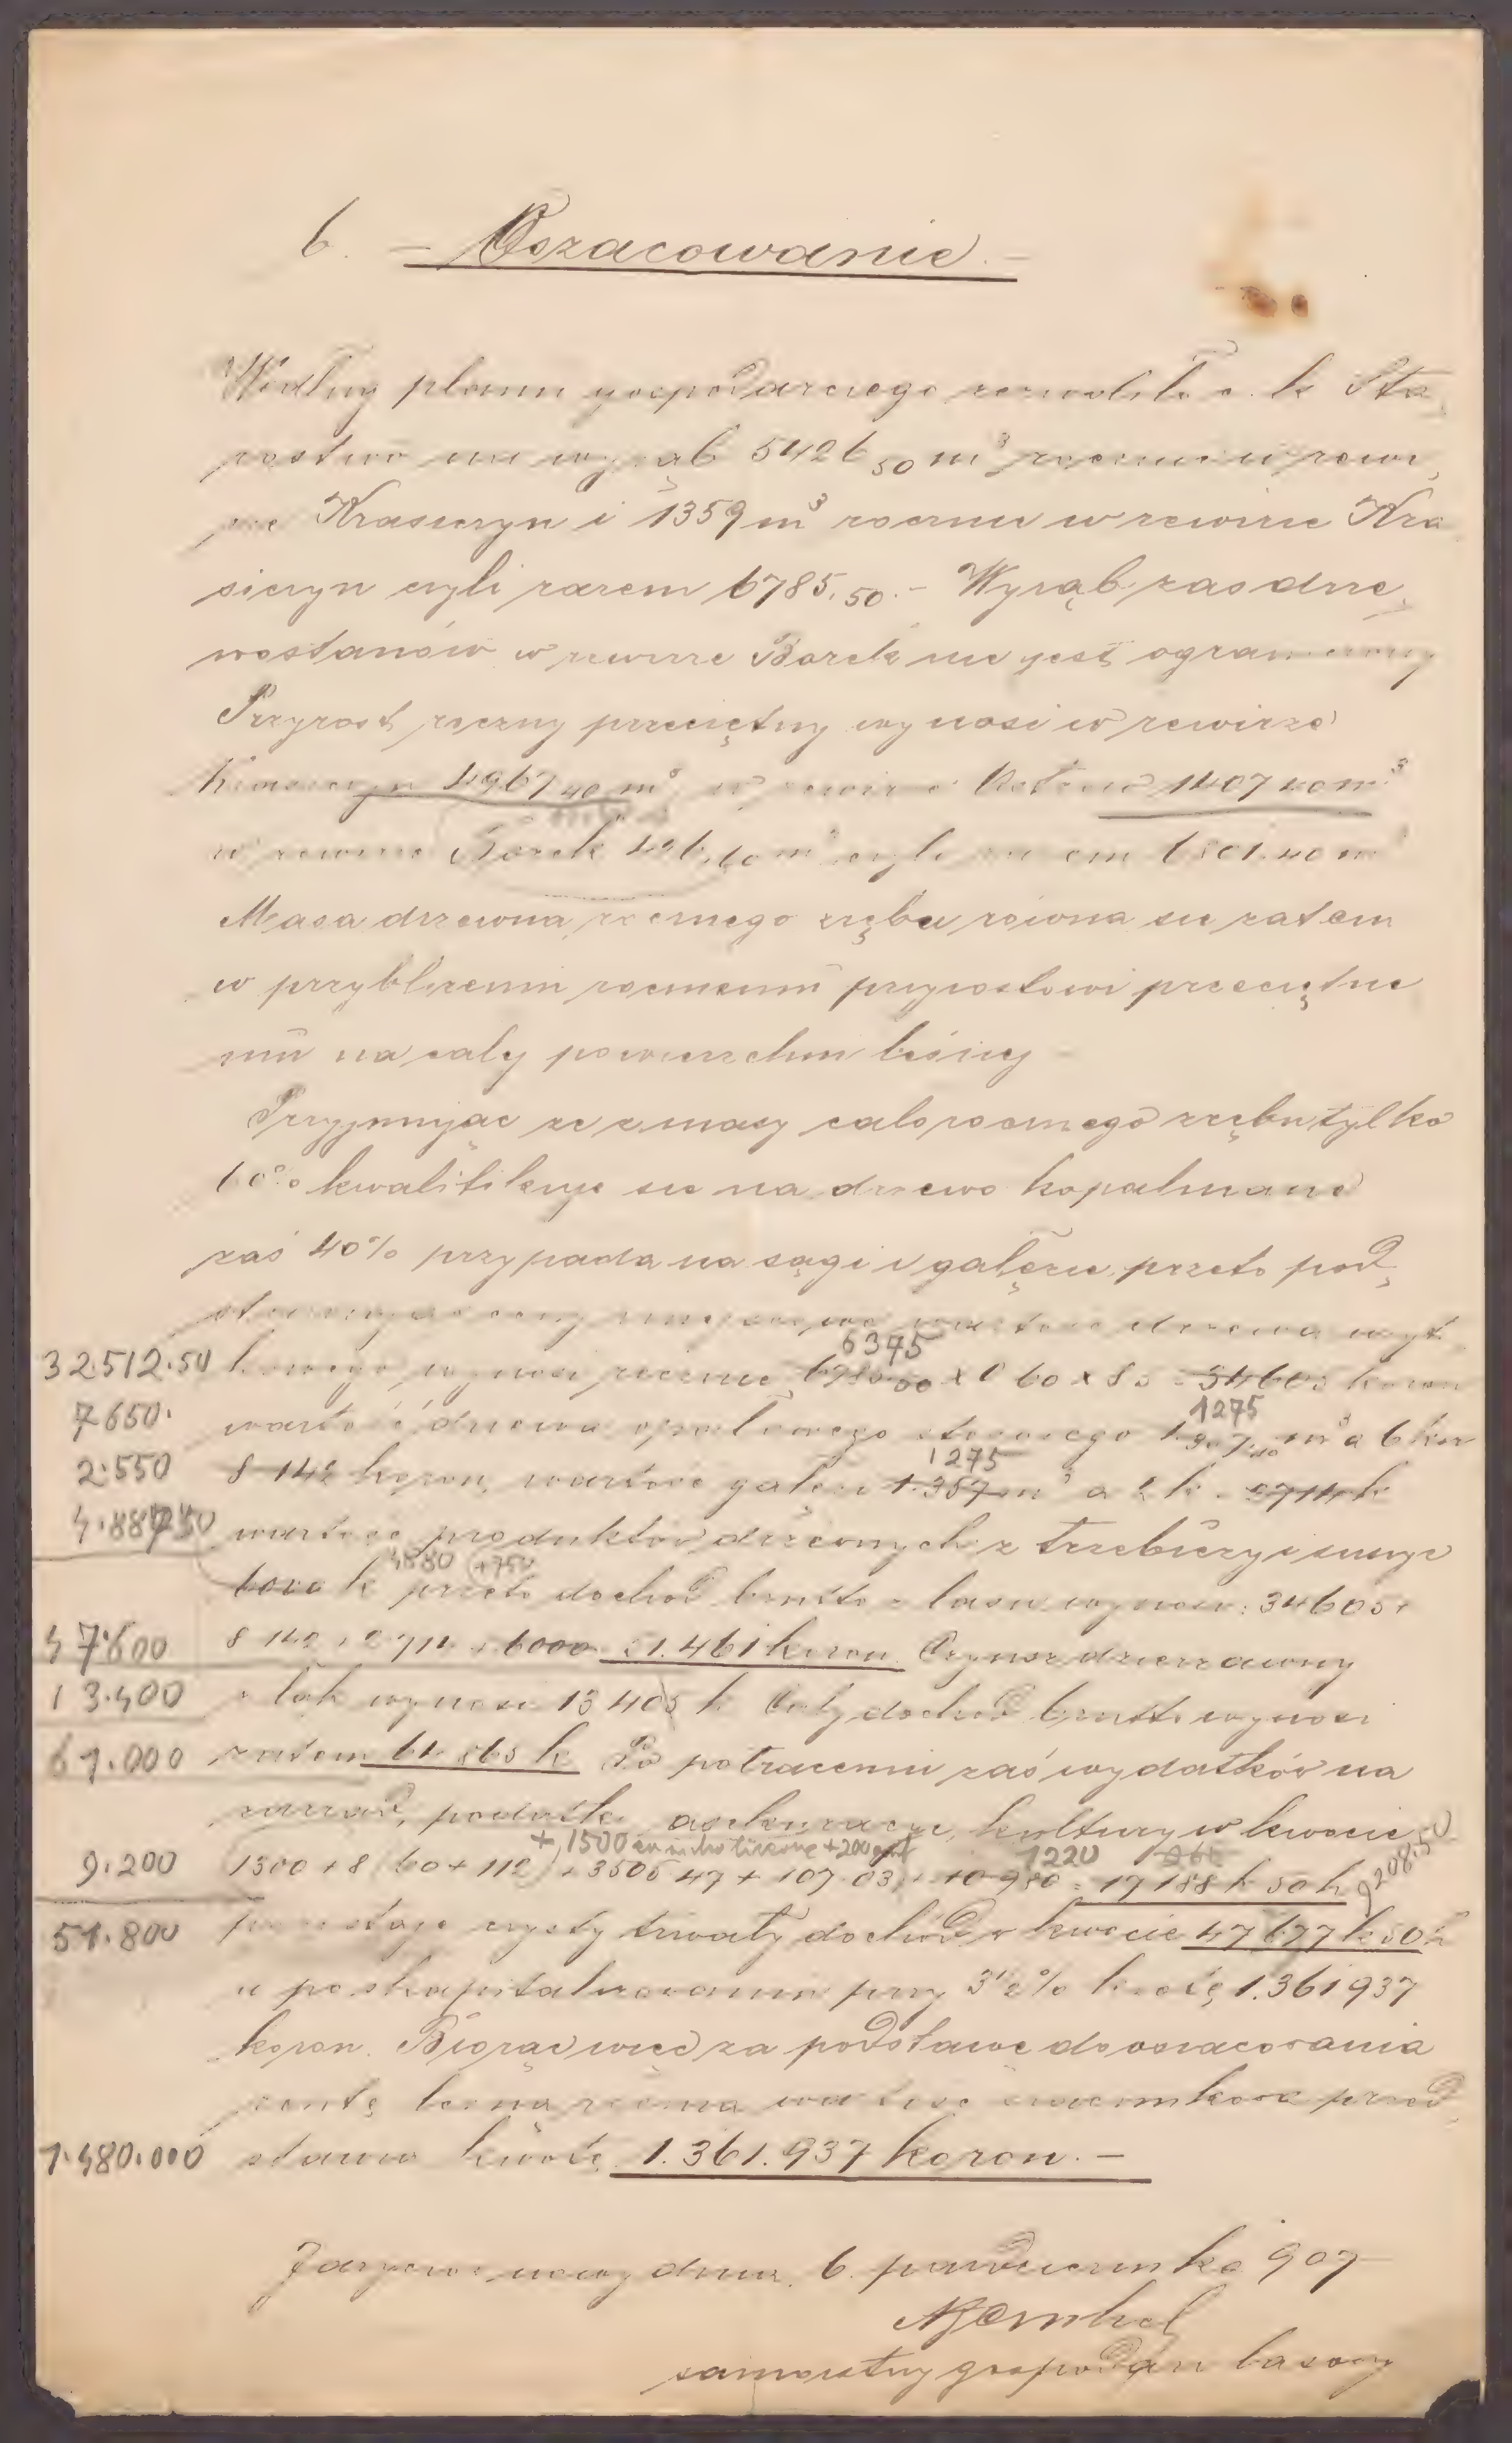 6. — Oszacowanie. —
Według planu gospodarczego zezwoliło c. k. Sta
rostwo na wyrąb 5426 50 m³ rocznie w rewi
rze Krasiczyn i 1359 m³ rocznie w rewirze Kra
siczyn czyli razem 6785.50. — Wyrąb zas drze
wostanów w rewirze Borek nie jest ograniczony
Przyrost roczny przeciętny wynosi w rewirze
Krasiczyn 4967 40 m³ w rewirze 1407 40 m³
w rewirze Borek 426.60 m³ czyli razem 6801.40 m³
Masa drzewna rocznego zrębu rowna sie zatem
w przybliżeniu rocznemu przyrostowi przeciętne
mu na całej powierzchni leśnej —
Przyjmując ze z masy całorocznego zrębu tylko
60% kwalifikuje sie na drzewo kopalniane
zaś 40% przypada na sągi i gałęzie, przeto pod
wartość drzewa użyt
6375
32.512.50 kowego wynosi rocznie 6785.50 x 0 60 x 8 5 = 34605 koron
1275
7650. wartość drzewa opałowego m³ a 6 kor
1275
2.550 8 142 koron, wartość gałęzi 1.357 m³ a 2 k. 2714 k
4.887.50 wartosc produktów drzewnych z trzebieży i suszyc
4880 +750
6000 k przeto dochód brutto z lasu wynosi: 34605 +
47.600 8 142 + 2 714 + 6000 = 51.461 koron. Czynsz dzierzawny
13.400 z łąk wynosi 13 405 k Cały dochód brutto wynosi
61.000 zatem 64 865 k Po potraceniu zaś wydatków na
zarzad, podatki, asekuracye, kultury w kwocie
+ 1500 +200 1220 266 9208.50
9.200 1300 + 8 (60 + 112) + 3505 47 + 107.03 + 10 980 = 17 188 k 50 h
51.800 pozostaje czysty trwały dochód w kwocie 47 677 k 50 h
a po skapitalizowaniu przy 3½% kwotę 1.361 937
koron. Biorąc więc za podstawę do oszacowania
rentę leśną roczna wartosc przed
1.480.000 stawia kwotę 1.361.937 koron. —
dnia 6. pazdziernika 907
samoistny gospodarz lasowy